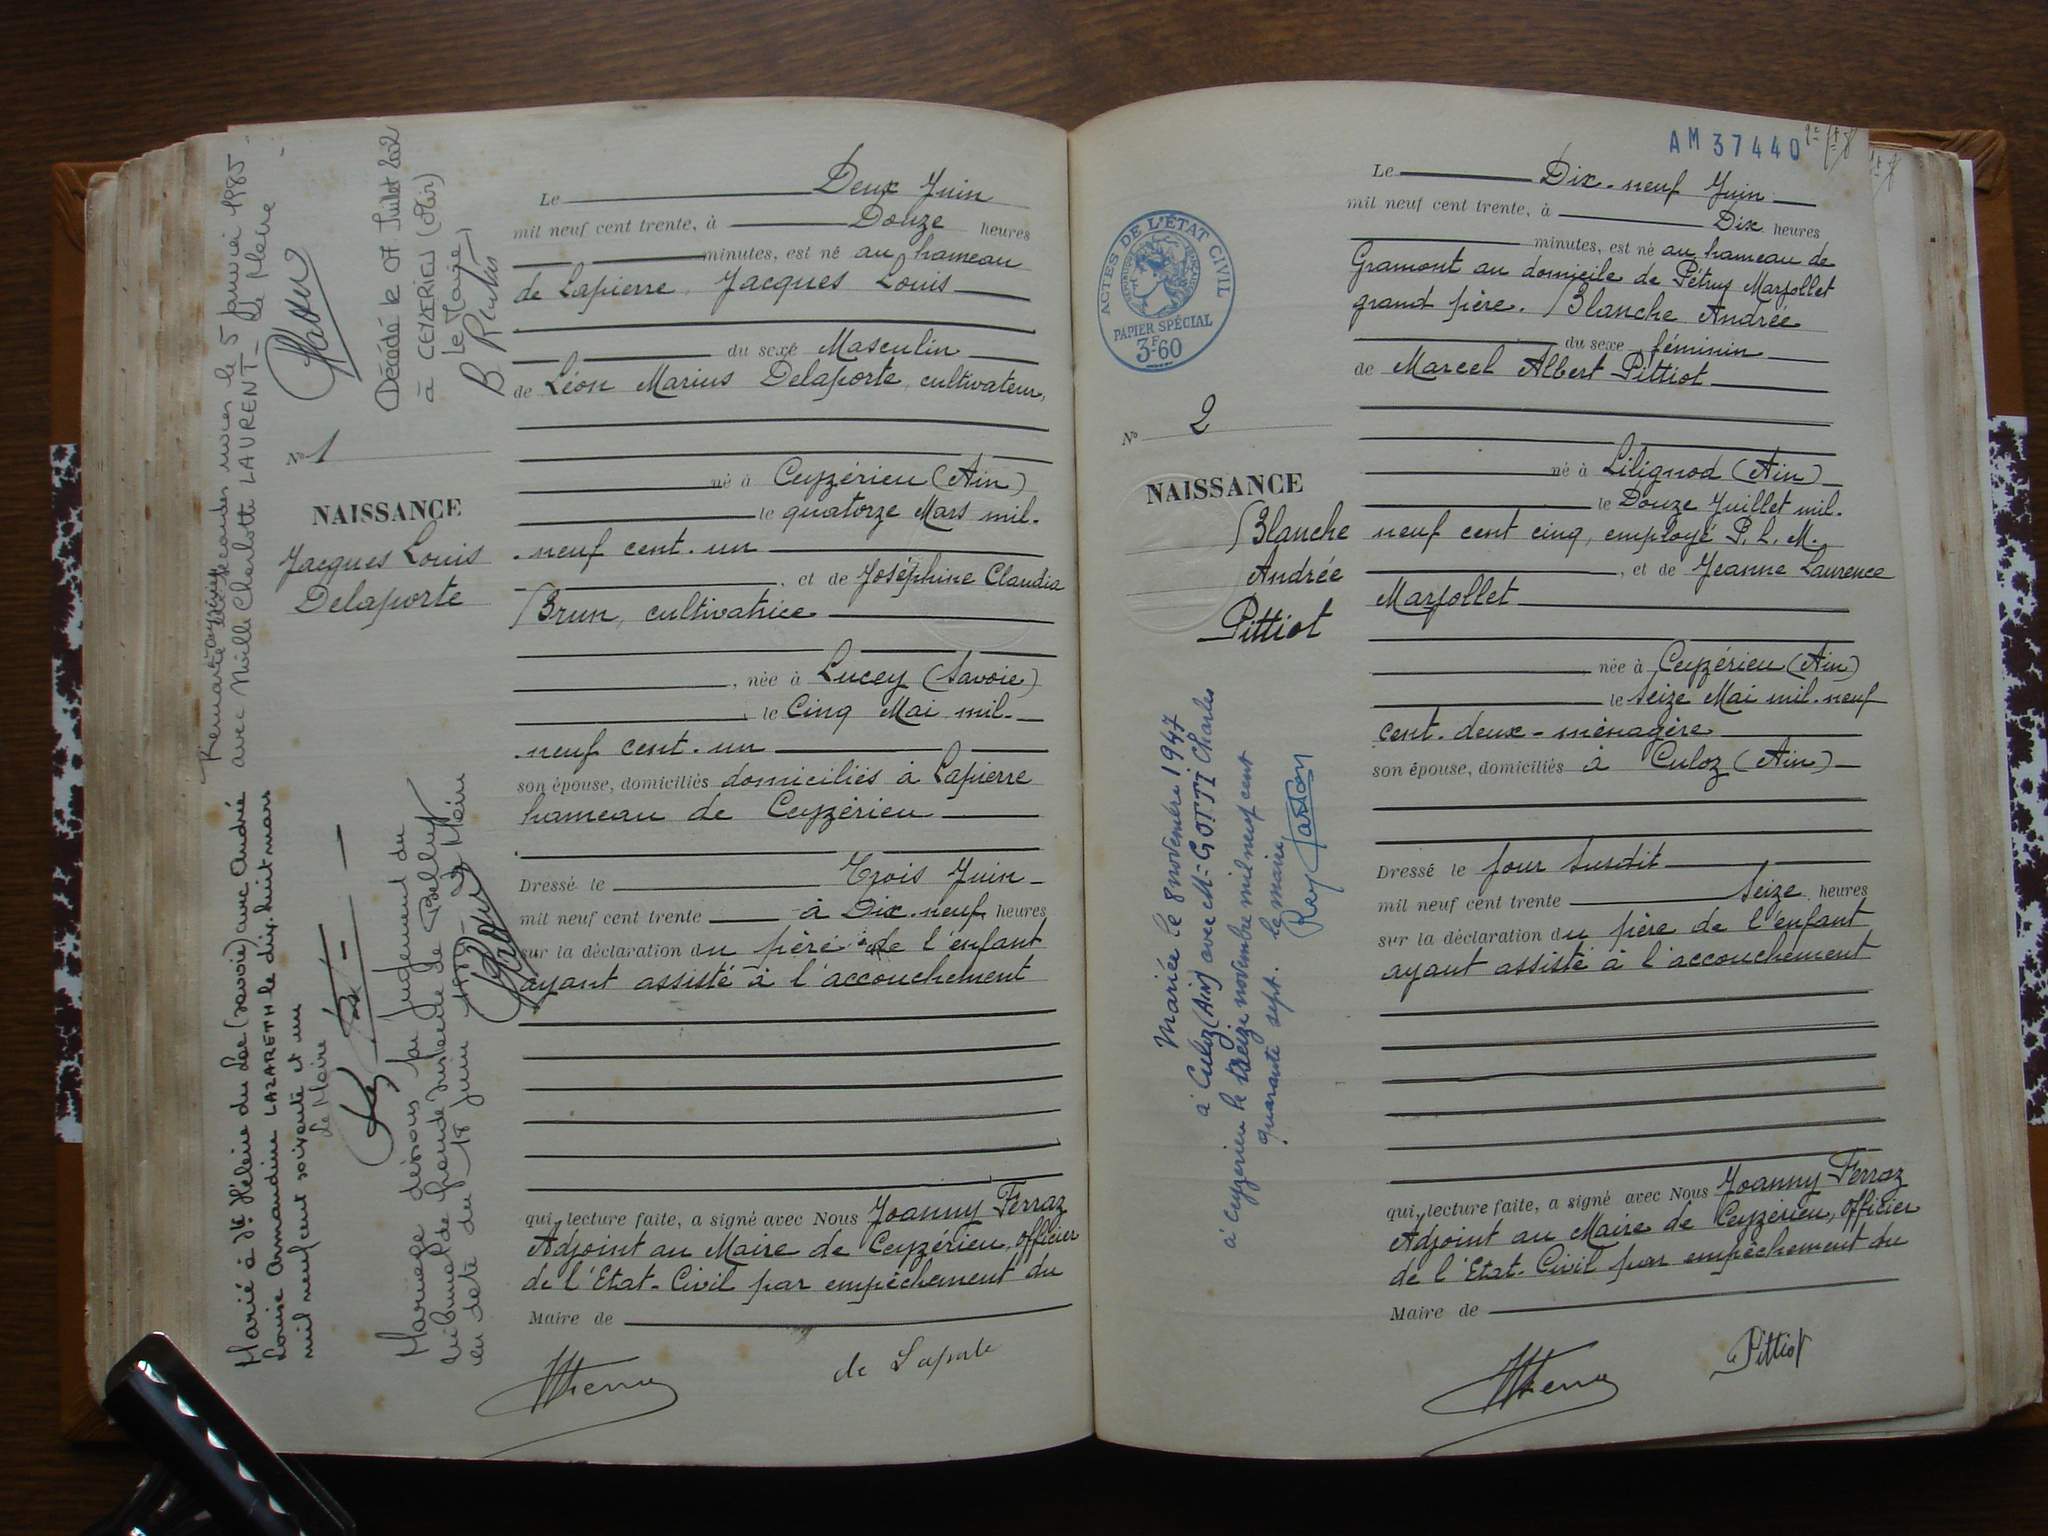 Remarié ayézieu en secondes noces le 5 janvier 1985
avec Melle Charlotte LAURENT - Le Maire
Décédé le 07 Juillet
à CEYZERIEU (Ain)
le Maire,
Marié à Ste Hélène du Lac (savoie) avec Andrée
Louise Armandine LAZARETH le dix huit mars
mil neuf cent soixante et un
Le Maire
Mariage dissous par jugement du
tribunal de grande instance de Belley
en date du 18 juin
Le Maire
No 1
NAISSANCE
Jacques Louis
Delaporte
Le Deux Juin
mil neuf cent trente, à Douze heures
minutes, est né au hameau
de Lapierre, Jacques Louis
du sexe Masculin
de Léon Marius Delaporte, cultivateur,
né à Ceyzérieu (Ain)
le quatorze Mars mil-
neuf cent-un
, et de Joséphine Claudia
Brun, cultivatrice
, née à Lucey (Savoie)
, le Cinq Mai mil-
neuf cent-un
son épouse, domiciliés domiciliés à Lapierre
hameau de Ceyzérieu
Dressé le Trois Juin
mil neuf cent trente à Dix-neuf heures
sur la déclaration du père de l'enfant
ayant assisté à l'accouchement
qui, lecture faite, a signé avec Nous Joanny Ferraz
Adjoint au Maire de Ceyzérieu, officier
de l'Etat-Civil par empêchement du
Maire de
de Laporte
AM 37440
ACTES DE L'ÉTAT CIVIL
PAPIER SPÉCIAL
3F60
No 2
NAISSANCE
Blanche
Andrée
Pittiot
Mariée le 8 novembre 1947
à Culoz (Ain) avec M- GOTTI Charles
à Ceyzérieu le treize novembre mil neuf cent
quarante sept. le maire
Le Dix-neuf Juin
mil neuf cent trente, à Dix heures
minutes, est né au hameau de
Gramont au domicile de Pétrus Marjollet
grand père. Blanche Andrée
du sexe féminin
de Marcel Albert Pittiot
né à Lilignod (Ain)
le Douze Juillet mil-
neuf cent cinq, employé P. L. M.
, et de Jeanne Laurence
Marjollet
née à Ceyzérieu (Ain)
le Seize Mai mil-neuf
cent-deux-ménagère
son épouse, domiciliés à Culoz (Ain)
Dressé le jour susdit
mil neuf cent trente Seize heures
sur la déclaration du père de l'enfant
ayant assisté à l'accouchement
qui, lecture faite, a signé avec Nous Joanny Ferraz
Adjoint au Maire de Ceyzérieu, officier
de l'Etat-Civil par empêchement du
Maire de
Pittiot